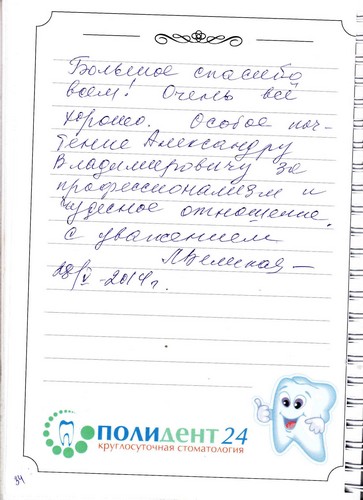 Большое спасибо
всем! Очень всё
хорошо. Особое поч-
тение Александру
Владимировичу за
профессионализм и
чудесное отношение.
с уважением
Л Великая —
28/V-2014г.
ПОЛИДЕНТ 24
круглосуточная стоматология
34